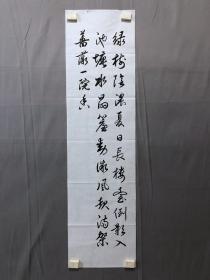 綠樹陰濃夏日長樓臺倒影入
池塘水晶簾動微風起滿架
薔薇一院香